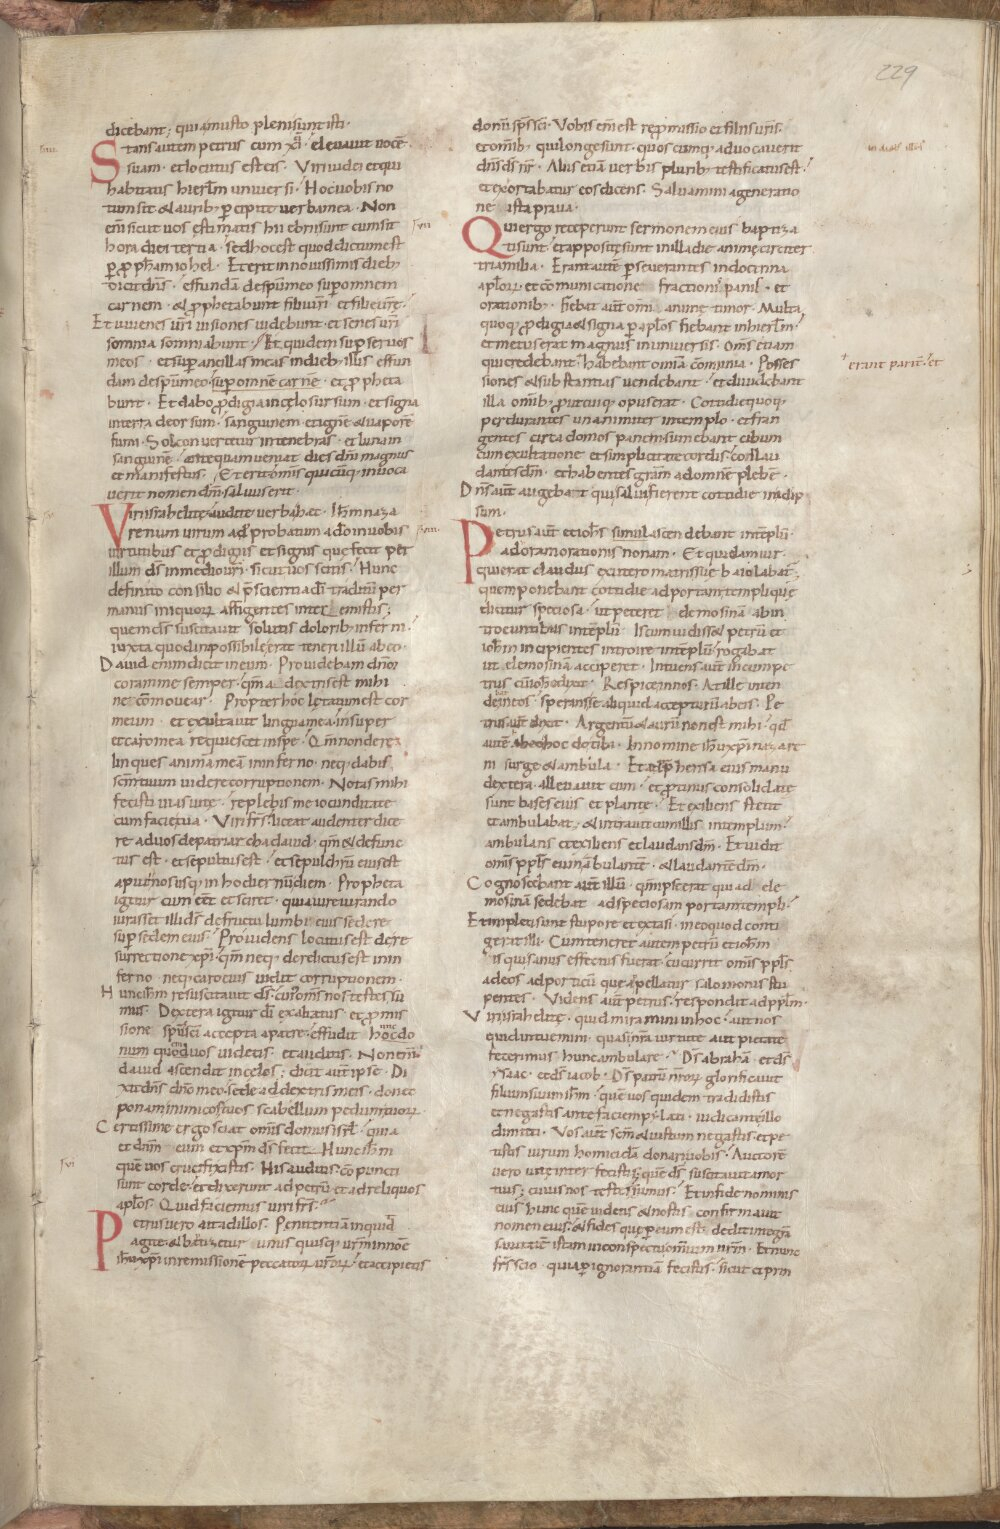 229
dicebant; quia musto pleni sunt isti.
Stans autem petrus cum xi. elevavit vocē
suam. et locutus est eis. Viri iudei et qui
habitatis hierl̄m universi. Hoc vobis no
tum sit & aurib; percipite verba mea. Non
eni sicut vos estimatis hii ebrii sunt cum sit
hora diei tertia. sed hoc est quod dictum est
p̱ ꝓph̄am iohel. Et erit in novissimis dieb;
dicit dn̄s. effundā de spū meo sup omnem
carnem. & ꝓphetabunt filii vr̄i. et filie vr̄ę.
Et iuvenes vr̄i visiones videbunt. et senes vr̄i
somnia somniabunt. Et quidem sup servos
meos. et sup ancillas meas in dieb; illis effun
dam de spū meo sup omnē carnē. et ꝓpheta
bunt. Et dabo ꝓdigia in cęlo sursum. et signa
in terra deorsum. sanguinem. et ignē & vaporē
fumi. Sol convertetur in tenebras. et luna in
sanguinē. antequam veniat dies dn̄i magnus
et manifestus. Et erit omnis quicūq; invoca
verit nomen dn̄i salvus erit.
Viri israhelitę audite verba hęc. Ih̄m naza
renum virum adprobatum a dō in vobis
virtutibus et ꝓdigiis et signis quę fecit per
illum ds̄ in medio vr̄i. sicut vos scitis. Hunc
definito consilio & p̄scientia dī traditū per
manus iniquoꝝ affligentes interemistis;
quem ds̄ suscitavit solutis dolorib; inferni.
iuxta quod inpossibile erat teneri illū ab eo.
David enim dicit in eum. Providebam dn̄m
coram me semper. qm̄ a dextris est mihi
ne cōmovear. Propter hoc lętatum est cor
meum. et exultavit lingua mea. insuper
et caro mea requiescet in spe. Qm̄ non dere
linques animā meā in inferno. neq; dabis
scm̄ tuum videre corruptionem. Notas mihi
fecisti vias vitę. replebis me iocunditate
cum facie tua. Viri frs̄. liceat audenter dice
re ad vos de patriarcha david. qm̄ & defunc
tus est. et sepultus est. et sepulchrū eius est
aput nos usq; in hodiernū diem. Propheta
igitur cum eēt et sciret. quia iureiurando
iurasset illi ds̄ de fructu lumbi eius sedere
sup sedem eius. Providens locutus est de re
surrectione xp̄i. qm̄ neq; derelictus est in in
ferno. neq; caro eius vidit corruptionem.
Hunc ih̄m resuscitavit ds̄. cui om̄s nos testes su
mus. Dextera igitur dī exaltatus. et ꝓmis
sione sp̄s scī accepta a patre. effudit hoc do
num quod vos videtis. et auditis. Non enī
david ascendit in cęlos; dicit aut̄ ipse. Di
xit dn̄s dn̄o meo. sede a dextris meis. donec
ponam inimicos tuos scabellum pedum tuoꝝ.
Certissime ergo sciat om̄is domus isrl̄. quia
et dn̄m eum et xp̄m ds̄ fecit. Hunc ih̄m
quē vos crucifixistis. His auditis. cōpuncti
sunt corde. et dixerunt ad petrū et ad reliquos
apl̄os. Quid faciemus viri frs̄.
Petrus vero ait ad illos. Penitentiā inquid
agite. & batizetur unus quisq; vr̄m in noīe
ih̄u xp̄i in remissionē peccatoꝝ vr̄oꝝ. et accipietis
donū sp̄s scī. Vobis enī est repromissio et filiis vr̄is.
et omīb; qui longe sunt. quoscumq; advocaverit
dn̄s ds̄ nr̄. Aliis etiā verbis plurib; testificatus est.
et exortabatur eos dicens. Salvamini a generatio
ne ista prava.
Qui ergo receperunt sermonem eius baptiza
ti sunt. et appositę sunt in illa die animę circiter
tria milia. Erant autē perseverantes in doctrina
apl̄oꝝ. et cōmunicatione fractionis panis. et
orationib;. fiebat aut̄ omi animę timor. Multa
quoq; ꝓdigia & signa p apl̄os fiebant in hierl̄m.
et metus erat magnus in universis. Om̄s etiam
qui credebant. habebant omīa cōmunia. Posses
siones & substantias vendebant. et dividebant
illa omīb; ꝓut cuiq; opus erat. Cotidie quoq;
perdurantes unanimiter in templo. et fran
gentes circa domos panem sumebant cibum
cum exultatione et simplicitate cordis. collau
dantes dm̄. et habentes grām ad omnē plebē.
Dn̄s aut̄ augebat qui salvi fierent cotidie in id ip
sum.
Petrus aut̄ et ioh̄s simul ascendebant in tēplū.
ad oram orationis nonam. Et quidam vir.
qui erat claudus ex utero matris suę baiolabat̄.
quem ponebant cotidie ad portam templi quę
dicitur speciosa. ut peteret elemosinā ab in
troeuntibus in tēplū. Is cum vidisset petrū et
ioh̄m incipientes introire in tēplū. rogabat
ut elemosinam acciperet. Intuens aut̄ in eum pe
trus cū ioh̄e dixit. Respice in nos. At ille inten
debat in eos. sperans se aliquid accepturū ab eis. Pe
trus aut̄ dixit. Argentū & aurū non est mihi. qd̄
autē habeo hoc do tibi. In nomine ih̄u xp̄i nazare
ni surge & ambula. Et adp̄hensa eius manu
dextera. allevavit eum. et ꝓtinus consolidate
sunt bases eius et plante. Et exiliens stetit
et ambulabat. & intravit cum illis in templum.
ambulans et exiliens et laudans dm̄. Et vidit
om̄is ppl̄s eum ābulantē. & laudantē dm̄.
Cognoscebant aut̄ illū. qm̄ ipse erat qui ad ele
mosinā sedebat ad speciosam portam templi.
Et impleti sunt stupore et extasi. in eo quod conti
gerat illi. Cum teneret autem petrū et ioh̄m
is qui sanus effectus fuerat. cucurrit om̄is ppl̄s
ad eos ad porticū que appellatur salomonis stu
pentes. Videns aut̄ petrus. respondit ad ppl̄m.
Viri israhelitę. quid miramini in hoc. aut nos
quid intuemini. quasi nr̄a virtute aut pietate
fecerimus hunc ambulare. Ds̄ abrahā. et ds̄
ysaac. et ds̄ iacob. Ds̄ patrū nr̄oꝝ glorificavit
filium suum ih̄m. quē vos quidem tradidistis
et negastis ante faciem pylati. iudicante illo
dimitti. Vos aut̄ scm̄ & iustum negastis. et pe
tistis virum homicidā donari vobis. Auctorē
vero vitę interfecistis; quē ds̄ suscitavit a mor
tuis; cuius nos testes sumus. Et in fide nominis
eius hunc quē videtis & nostis confirmavit
nomen eius. & fides quę p eum est. dedit integrā
sanitatē istam in conspectu omnium vrm̄. Et nunc
frs̄ scio. quia p ignorantiā fecistis. sicut et prin
erant parit̄. et